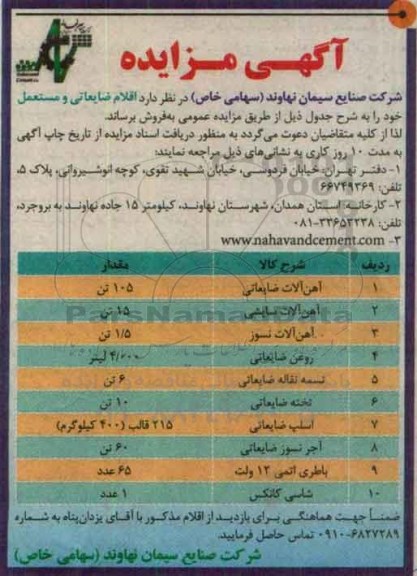 آگهـی مـزایده
شرکت صنایع سیمان نهاوند (سهامی خاص) در نظر دارد اقلام ضایعاتی و مستعمل
خود را به شرح جدول ذیل از طریق مزایده عمومی به‌فروش برساند.
لذا از کلیه متقاضیان دعوت می‌گردد به منظور دریافت اسناد مزایده از تاریخ چاپ آگهی
به مدت ۱۰ روز کاری به نشانی‌های ذیل مراجعه نمایند:
۱- دفتـر تهـران: خیابان فردوسـی، خیابان شـهید تقوی، کوچه انوشـیروانی، پلاک ۵،
تلفن: ۶۶۷۴۹۳۶۹
۲- کارخانـه: اسـتان همدان، شهرستان نهاونـد، کیلومتر ۱۵ جاده نهاونـد به بروجرد،
تلفن: ۳۳۶۵۳۲۳۸-۰۸۱
۳- www.nahavandcement.com
ردیف شرح کالا مقدار
۱ آهن‌آلات ضایعاتی ۱۰۵ تن
۲ آهن‌آلات سایشی ۱۵ تن
۳ آهن‌آلات نسوز ۱/۵ تن
۴ روغن ضایعاتی ۴/۰۰۰ لیتر
۵ تسمه نقاله ضایعاتی ۶ تن
۶ تخته ضایعاتی ۱۰ تن
۷ اسلب ضایعاتی ۲۱۵ قالب (۴۰۰ کیلوگرم)
۸ آجر نسوز ضایعاتی ۶۰ تن
۹ باطری اتمی ۱۲ ولت ۶۵ عدد
۱۰ شاسی کانکس ۱ عدد
ضمنـاً جهـت هماهنگـی بـرای بازدیـد از اقلام مذکـور با آقـای یزدان‌پناه به شـماره
۶۸۲۷۲۸۹-۰۹۱۰ تماس حاصل فرمایید.
شرکت صنایع سیمان نهاوند (سهامی خاص)